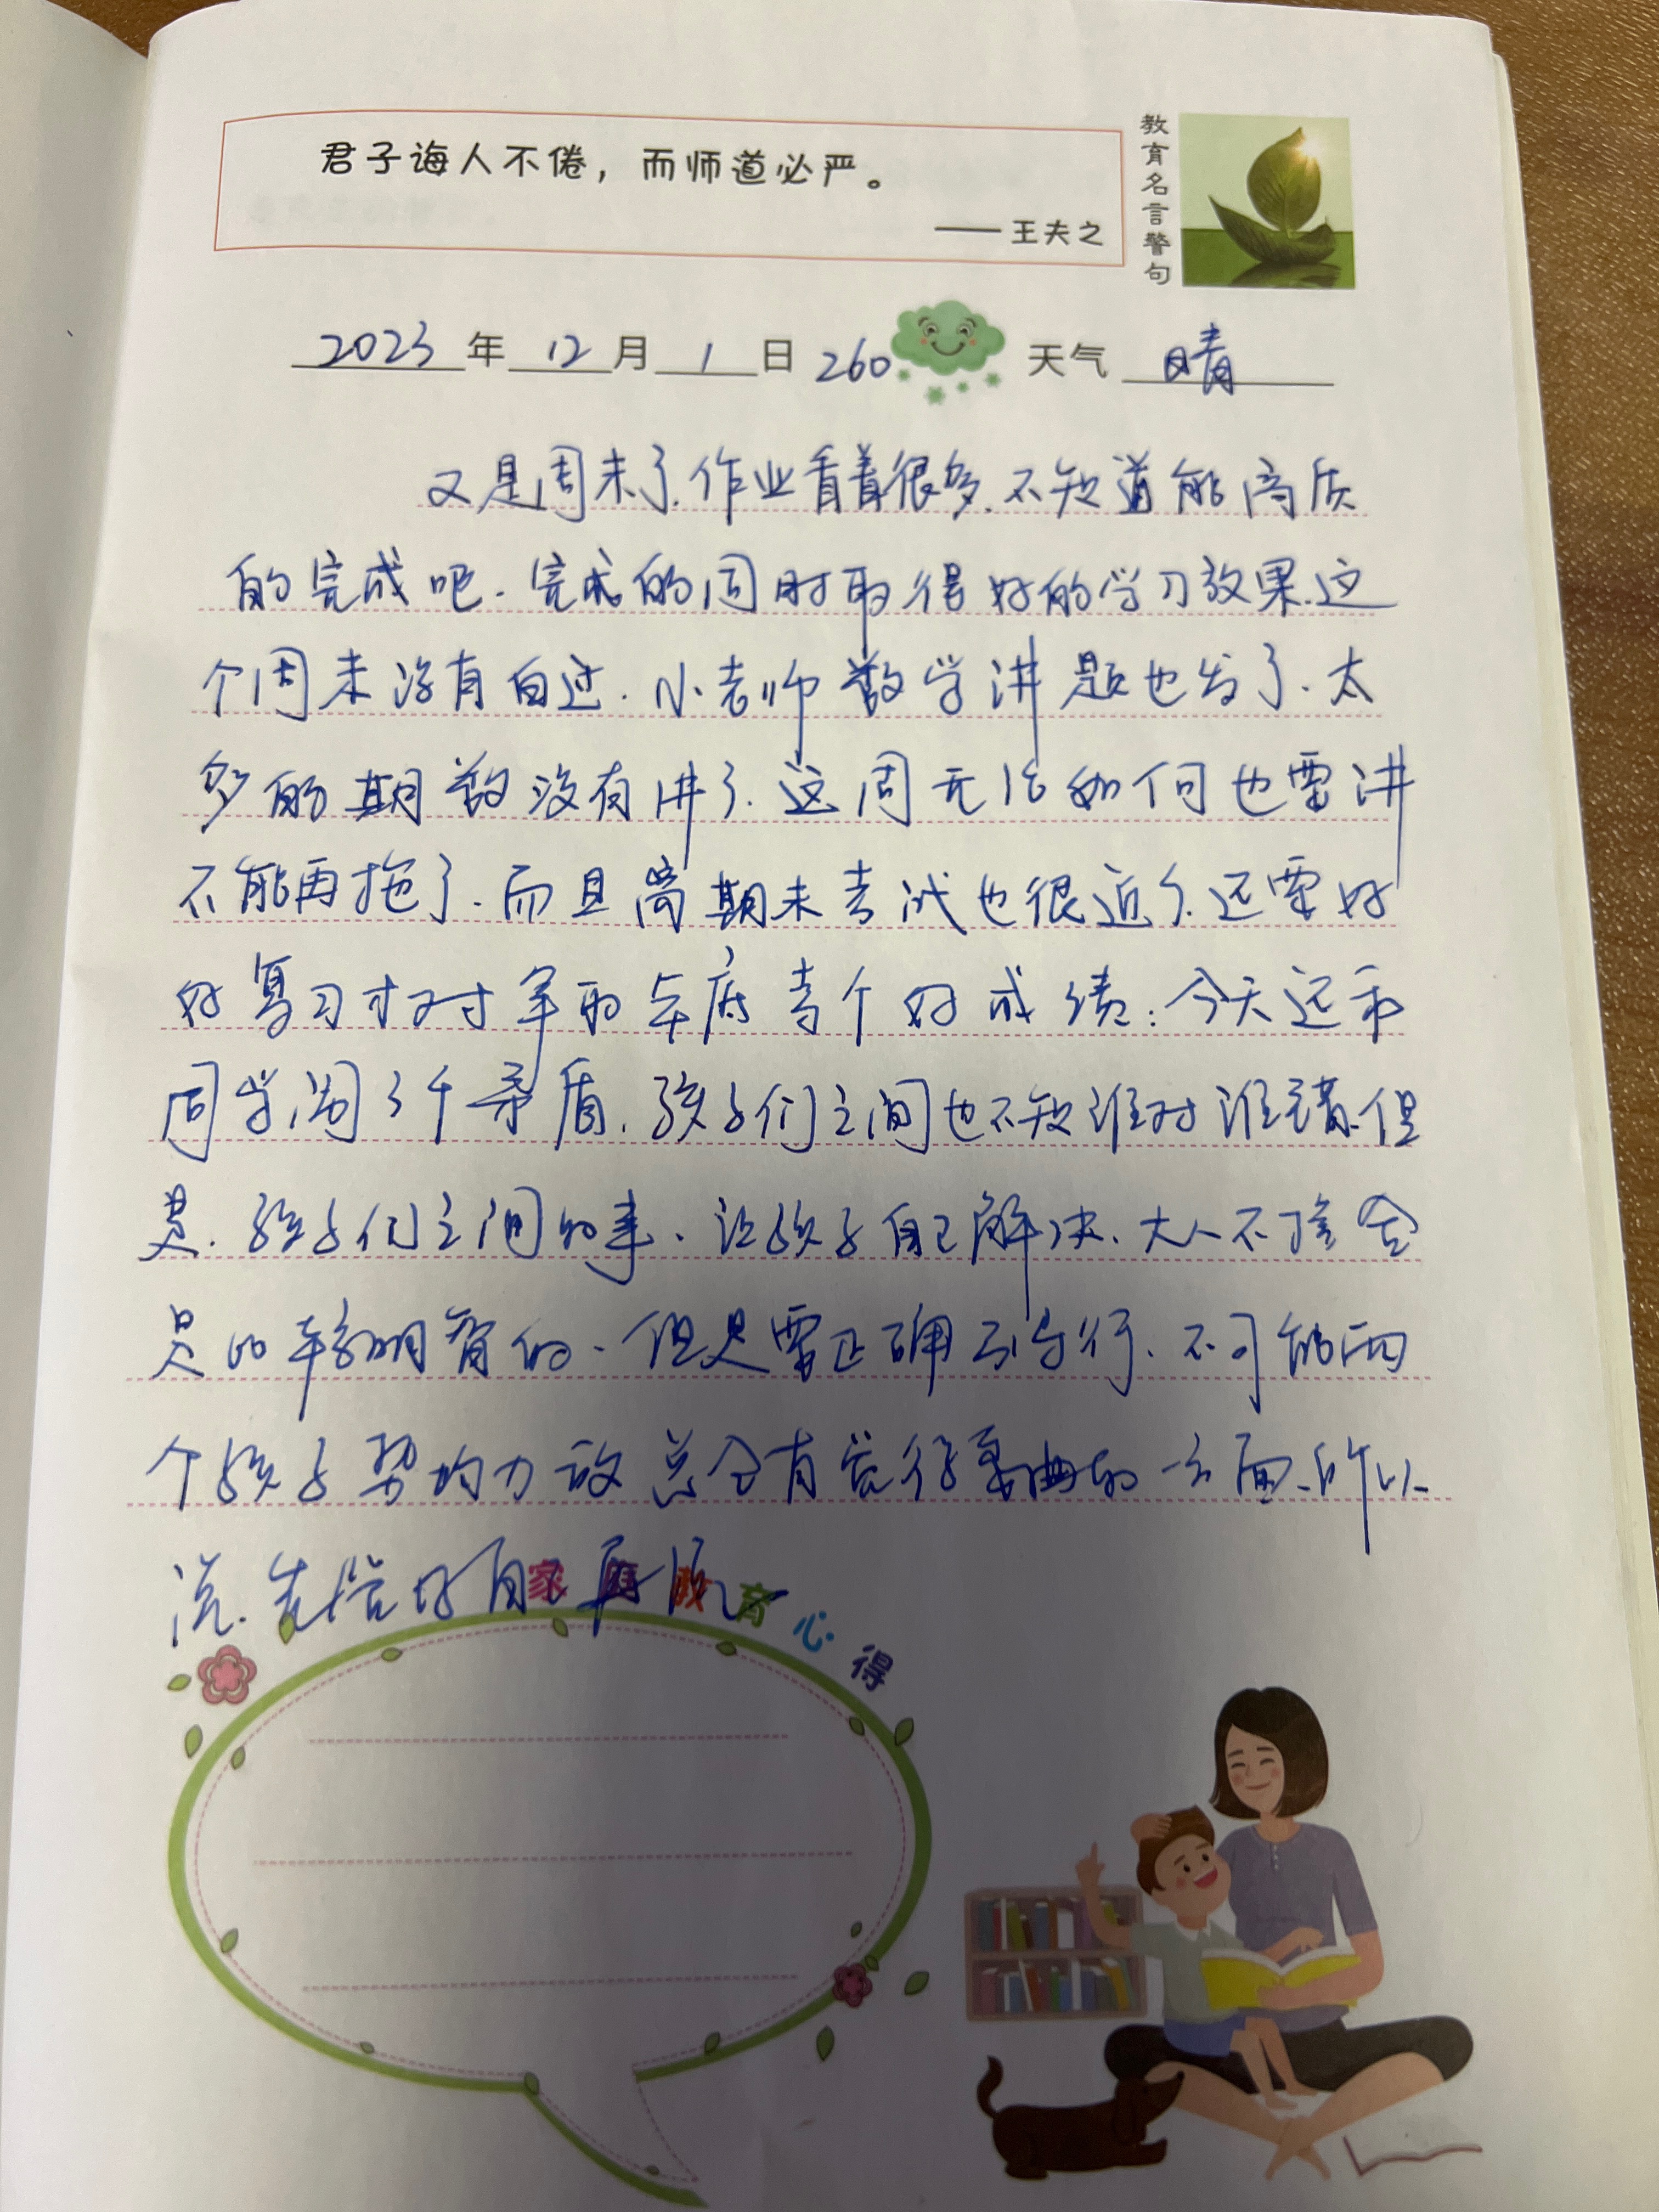 君子诲人不倦，而师道必严。
——王夫之
教育名言警句
2023年12月1日 260 天气 晴
又是周末了.作业看着很多.不知道能高质
的完成吧.完成的同时取得好的学习效果.这
个周末没有白过.小老师数学讲题也发了.太
多的期数没有讲了.这周无论如何也要讲
不能再拖了.而且离期末考试也很近了.还要好
好复习才对争取年底考个好成绩:今天还和
同学闹了个矛盾.孩子们之间也不知谁对谁错.但
是.孩子们之间的事.让孩子自己解决.大人不掺合
是比较明智的.但是需正确引导行.不可能两
个孩子势均力敌总会有觉得委曲的一方面.所以
说.先管好自己再
家庭教育心得